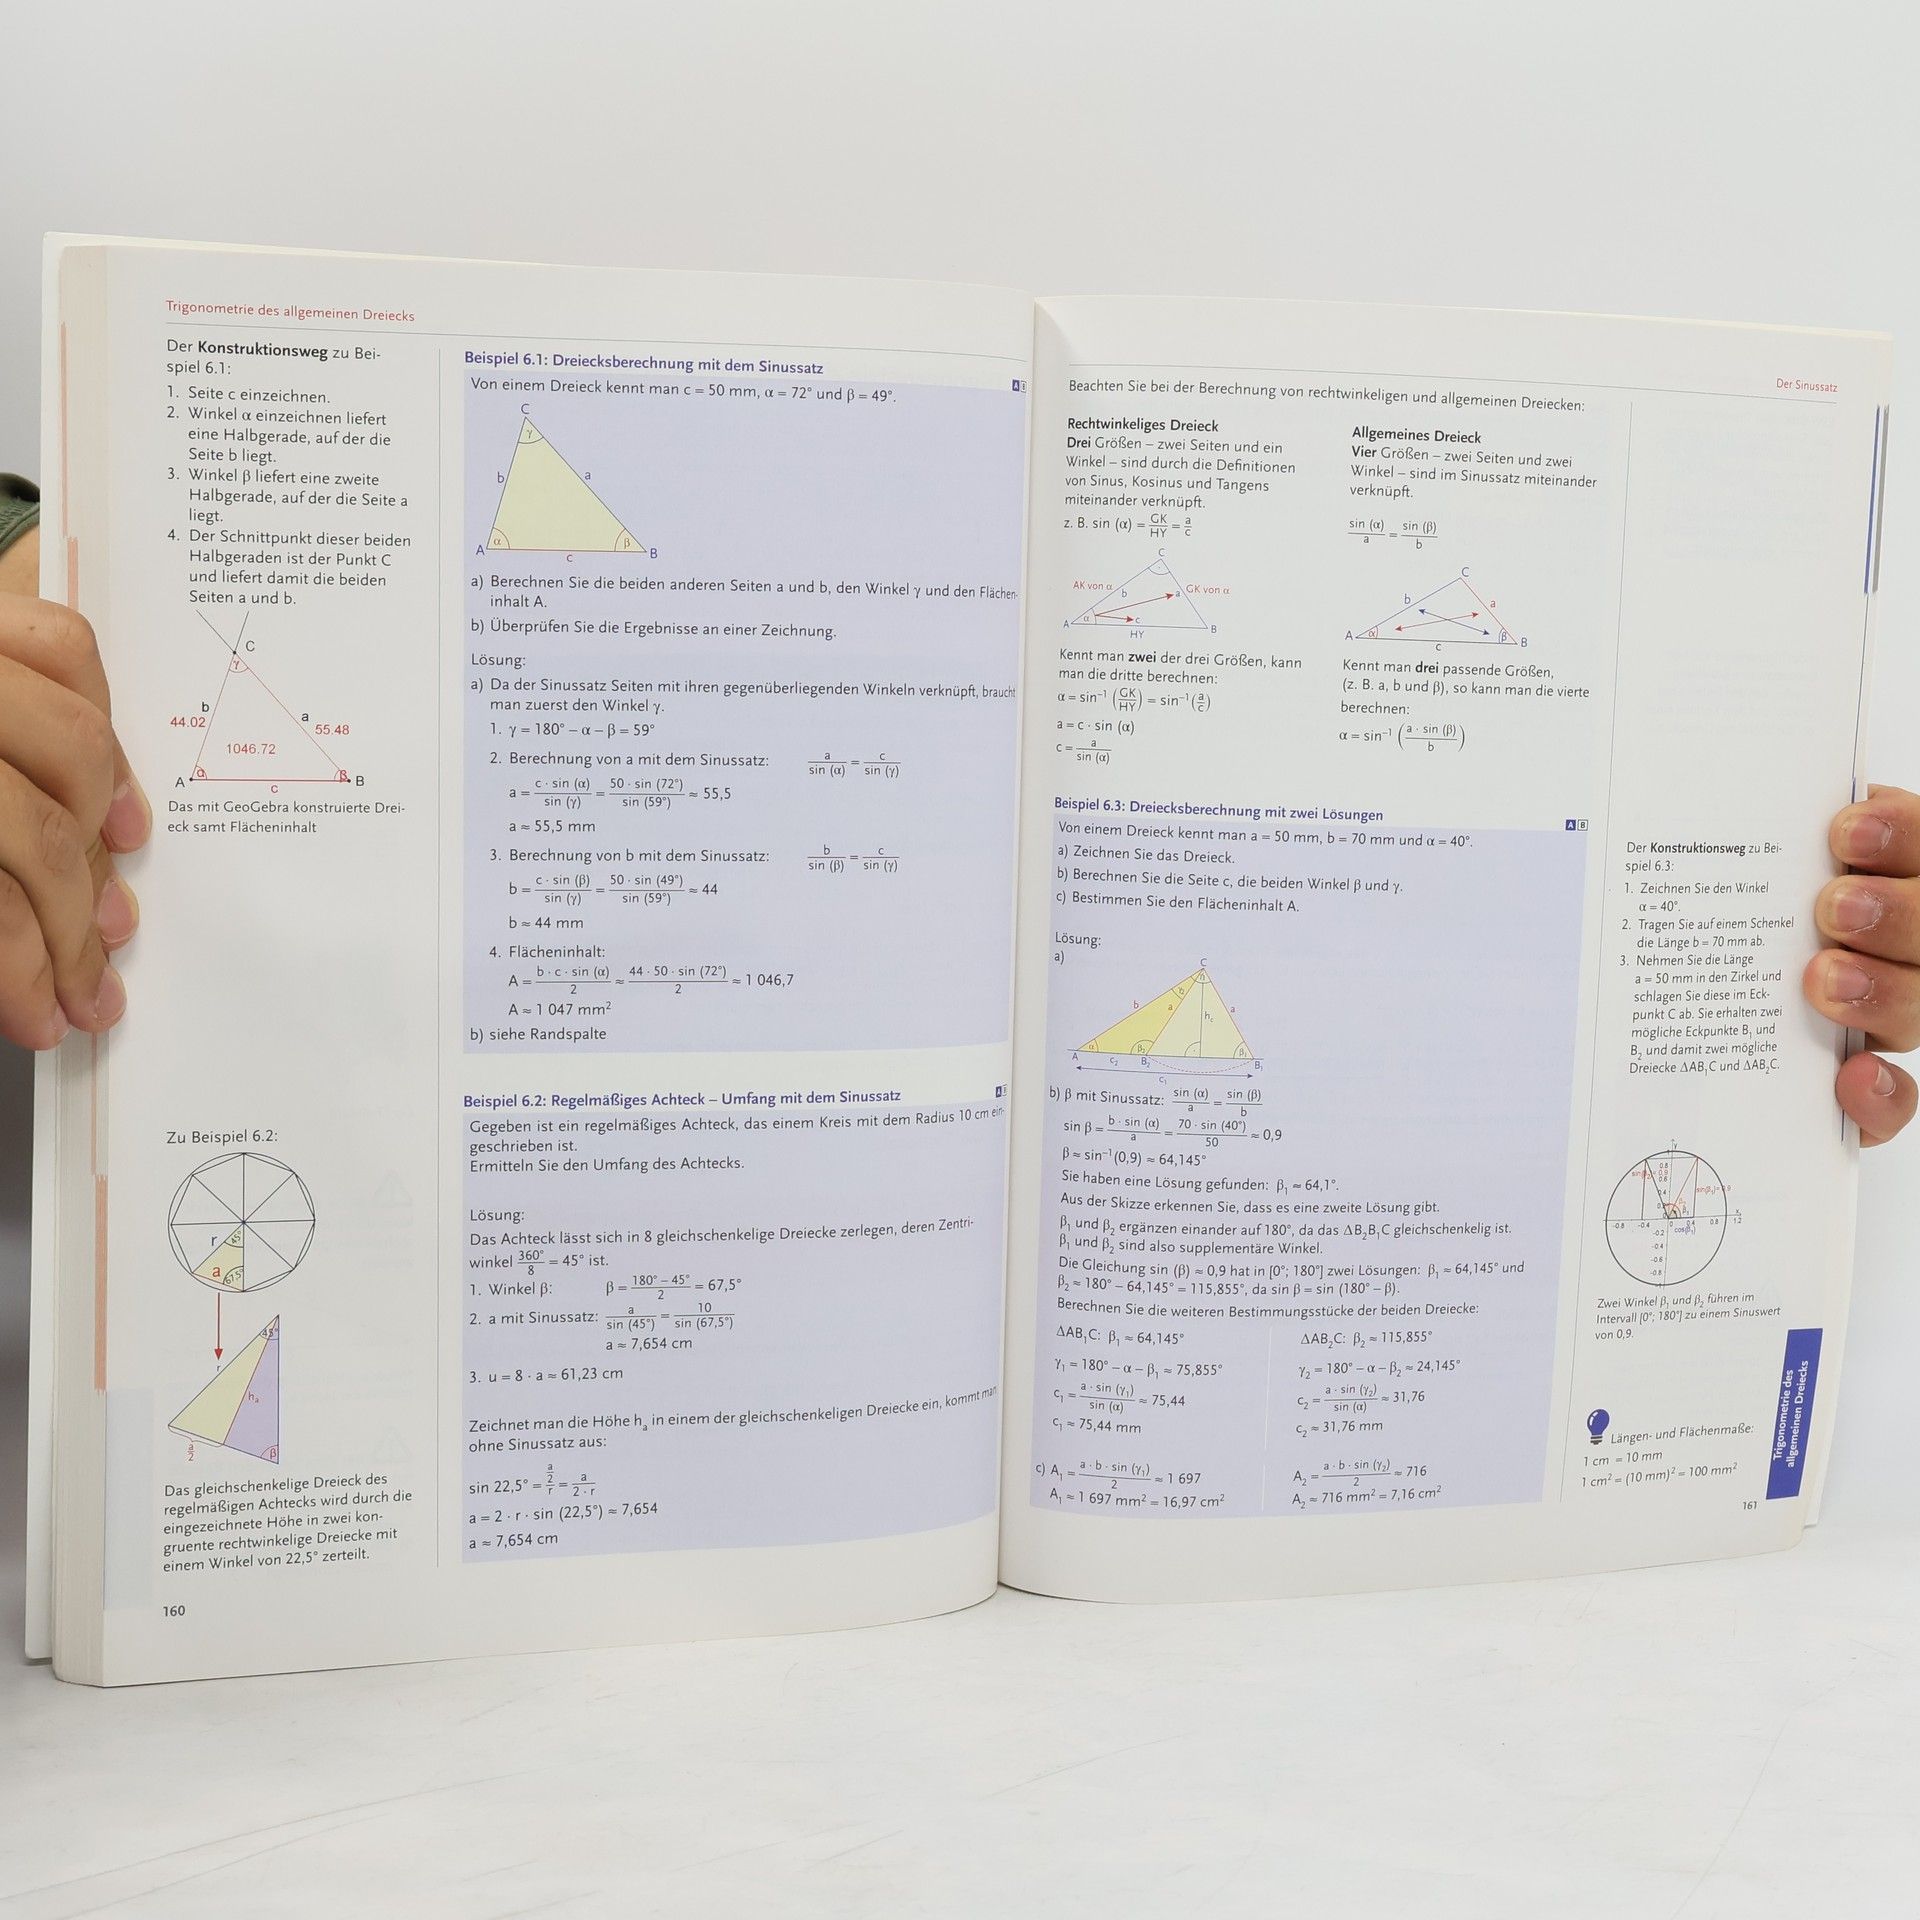 Trigonometrie des allgemeinen Dreiecks
Der Konstruktionsweg zu Bei-
spiel 6.1:
1. Seite c einzeichnen.
2. Winkel α einzeichnen liefert
eine Halbgerade, auf der die
Seite b liegt.
3. Winkel β liefert eine zweite
Halbgerade, auf der die Seite a
liegt.
4. Der Schnittpunkt dieser beiden
Halbgeraden ist der Punkt C
und liefert damit die beiden
Seiten a und b.
C
γ
b
44.02
a
55.48
1046.72
A α c β B
Das mit GeoGebra konstruierte Drei-
eck samt Flächeninhalt
Zu Beispiel 6.2:
r 45°
a 67,5°
45°
r
hₐ
a/2
β
Das gleichschenkelige Dreieck des
regelmäßigen Achtecks wird durch die
eingezeichnete Höhe in zwei kon-
gruente rechtwinkelige Dreiecke mit
einem Winkel von 22,5° zerteilt.
160
Beispiel 6.1: Dreiecksberechnung mit dem Sinussatz
A B
Von einem Dreieck kennt man c = 50 mm, α = 72° und β = 49°.
C
γ
b a
α β
A c B
a) Berechnen Sie die beiden anderen Seiten a und b, den Winkel γ und den Flächen-
inhalt A.
b) Überprüfen Sie die Ergebnisse an einer Zeichnung.
Lösung:
a) Da der Sinussatz Seiten mit ihren gegenüberliegenden Winkeln verknüpft, braucht
man zuerst den Winkel γ.
1. γ = 180° – α – β = 59°
2. Berechnung von a mit dem Sinussatz: a/sin (α) = c/sin (γ)
a = c · sin (α)/sin (γ) = 50 · sin (72°)/sin (59°) ≈ 55,5
a ≈ 55,5 mm
3. Berechnung von b mit dem Sinussatz: b/sin (β) = c/sin (γ)
b = c · sin (β)/sin (γ) = 50 · sin (49°)/sin (59°) ≈ 44
b ≈ 44 mm
4. Flächeninhalt:
A = b · c · sin (α)/2 ≈ 44 · 50 · sin (72°)/2 ≈ 1 046,7
A ≈ 1 047 mm²
b) siehe Randspalte
Beispiel 6.2: Regelmäßiges Achteck – Umfang mit dem Sinussatz
A
Gegeben ist ein regelmäßiges Achteck, das einem Kreis mit dem Radius 10 cm ein-
geschrieben ist.
Ermitteln Sie den Umfang des Achtecks.
Lösung:
Das Achteck lässt sich in 8 gleichschenkelige Dreiecke zerlegen, deren Zentri-
winkel 360°/8 = 45° ist.
1. Winkel β: β = 180° – 45°/2 = 67,5°
2. a mit Sinussatz: a/sin (45°) = 10/sin (67,5°)
a ≈ 7,654 cm
3. u = 8 · a ≈ 61,23 cm
Zeichnet man die Höhe hₐ in einem der gleichschenkeligen Dreiecke ein, kommt man
ohne Sinussatz aus:
sin 22,5° = a/2/r = a/2 · r
a = 2 · r · sin (22,5°) ≈ 7,654
a ≈ 7,654 cm
Der Sinussatz
Beachten Sie bei der Berechnung von rechtwinkeligen und allgemeinen Dreiecken:
Rechtwinkeliges Dreieck
Drei Größen – zwei Seiten und ein
Winkel – sind durch die Definitionen
von Sinus, Kosinus und Tangens
miteinander verknüpft.
z. B. sin (α) = GK/HY = a/c
C
AK von α b a GK von α
A α c B
HY
Kennt man zwei der drei Größen, kann
man die dritte berechnen:
α = sin⁻¹ (GK/HY) = sin⁻¹(a/c)
a = c · sin (α)
c = a/sin (α)
Allgemeines Dreieck
Vier Größen – zwei Seiten und zwei
Winkel – sind im Sinussatz miteinander
verknüpft.
sin (α)/a = sin (β)/b
C
b a
A α β B
c
Kennt man drei passende Größen,
(z. B. a, b und β), so kann man die vierte
berechnen:
α = sin⁻¹ (a · sin (β)/b)
Beispiel 6.3: Dreiecksberechnung mit zwei Lösungen
A B
Von einem Dreieck kennt man a = 50 mm, b = 70 mm und α = 40°.
a) Zeichnen Sie das Dreieck.
b) Berechnen Sie die Seite c, die beiden Winkel β und γ.
c) Bestimmen Sie den Flächeninhalt A.
Lösung:
a)
C
γ₂ γ₁
b a a
h꜀
α β₂ β₁
A c₂ B₂ B₁
c₁
b) β mit Sinussatz: sin (α)/a = sin (β)/b
sin β = b · sin (α)/a = 70 · sin (40°)/50 ≈ 0,9
β ≈ sin⁻¹(0,9) ≈ 64,145°
Sie haben eine Lösung gefunden: β₁ ≈ 64,1°.
Aus der Skizze erkennen Sie, dass es eine zweite Lösung gibt.
β₁ und β₂ ergänzen einander auf 180°, da das ΔB₂B₁C gleichschenkelig ist.
β₁ und β₂ sind also supplementäre Winkel.
Die Gleichung sin (β) ≈ 0,9 hat in [0°; 180°] zwei Lösungen: β₁ ≈ 64,145° und
β₂ ≈ 180° – 64,145° = 115,855°, da sin β = sin (180° – β).
Berechnen Sie die weiteren Bestimmungsstücke der beiden Dreiecke:
ΔAB₁C: β₁ ≈ 64,145°
γ₁ = 180° – α – β₁ ≈ 75,855°
c₁ = a · sin (γ₁)/sin (α) ≈ 75,44
c₁ ≈ 75,44 mm
c) A₁ = a · b · sin (γ₁)/2 ≈ 1 697
A₁ ≈ 1 697 mm² = 16,97 cm²
ΔAB₂C: β₂ ≈ 115,855°
γ₂ = 180° – α – β₂ ≈ 24,145°
c₂ = a · sin (γ₂)/sin (α) ≈ 31,76
c₂ ≈ 31,76 mm
A₂ = a · b · sin (γ₂)/2 ≈ 716
A₂ ≈ 716 mm² = 7,16 cm²
Der Konstruktionsweg zu Bei-
spiel 6.3:
1. Zeichnen Sie den Winkel
α = 40°.
2. Tragen Sie auf einem Schenkel
die Länge b = 70 mm ab.
3. Nehmen Sie die Länge
a = 50 mm in den Zirkel und
schlagen Sie diese im Eck-
punkt C ab. Sie erhalten zwei
mögliche Eckpunkte B₁ und
B₂ und damit zwei mögliche
Dreiecke ΔAB₁C und ΔAB₂C.
-0.8 -0.4 0 0.4 0.8 1.2
-0.2
-0.4
-0.6
-0.8
cos(β₁)
Zwei Winkel β₁ und β₂ führen im
Intervall [0°; 180°] zu einem Sinuswert
von 0,9.
Längen- und Flächenmaße:
1 cm = 10 mm
1 cm² = (10 mm)² = 100 mm²
Trigonometrie des
allgemeinen Dreiecks
161